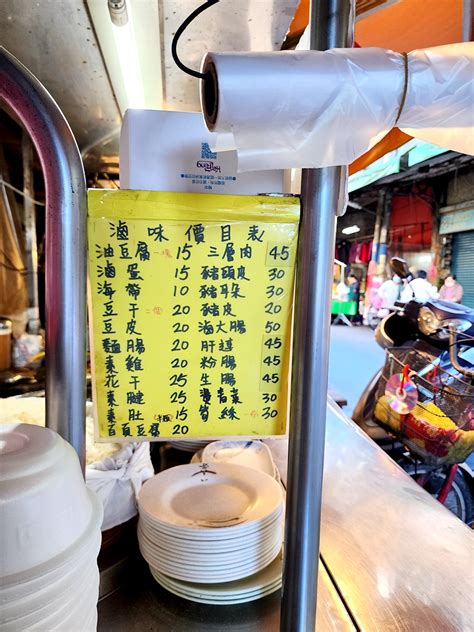 滷味價目表
油豆腐 一塊 15 三層肉 45
滷蛋 15 豬頭皮 30
海帶 10 豬耳朵 30
豆干 一個 20 豬皮 20
豆皮 20 大腸 50
麵腸 20 肝連 45
素雞 20 粉腸 45
花干 25 生腸 45
素腱 25 燙青菜 30
素肚 15 筍絲 30
百頁豆腐 20